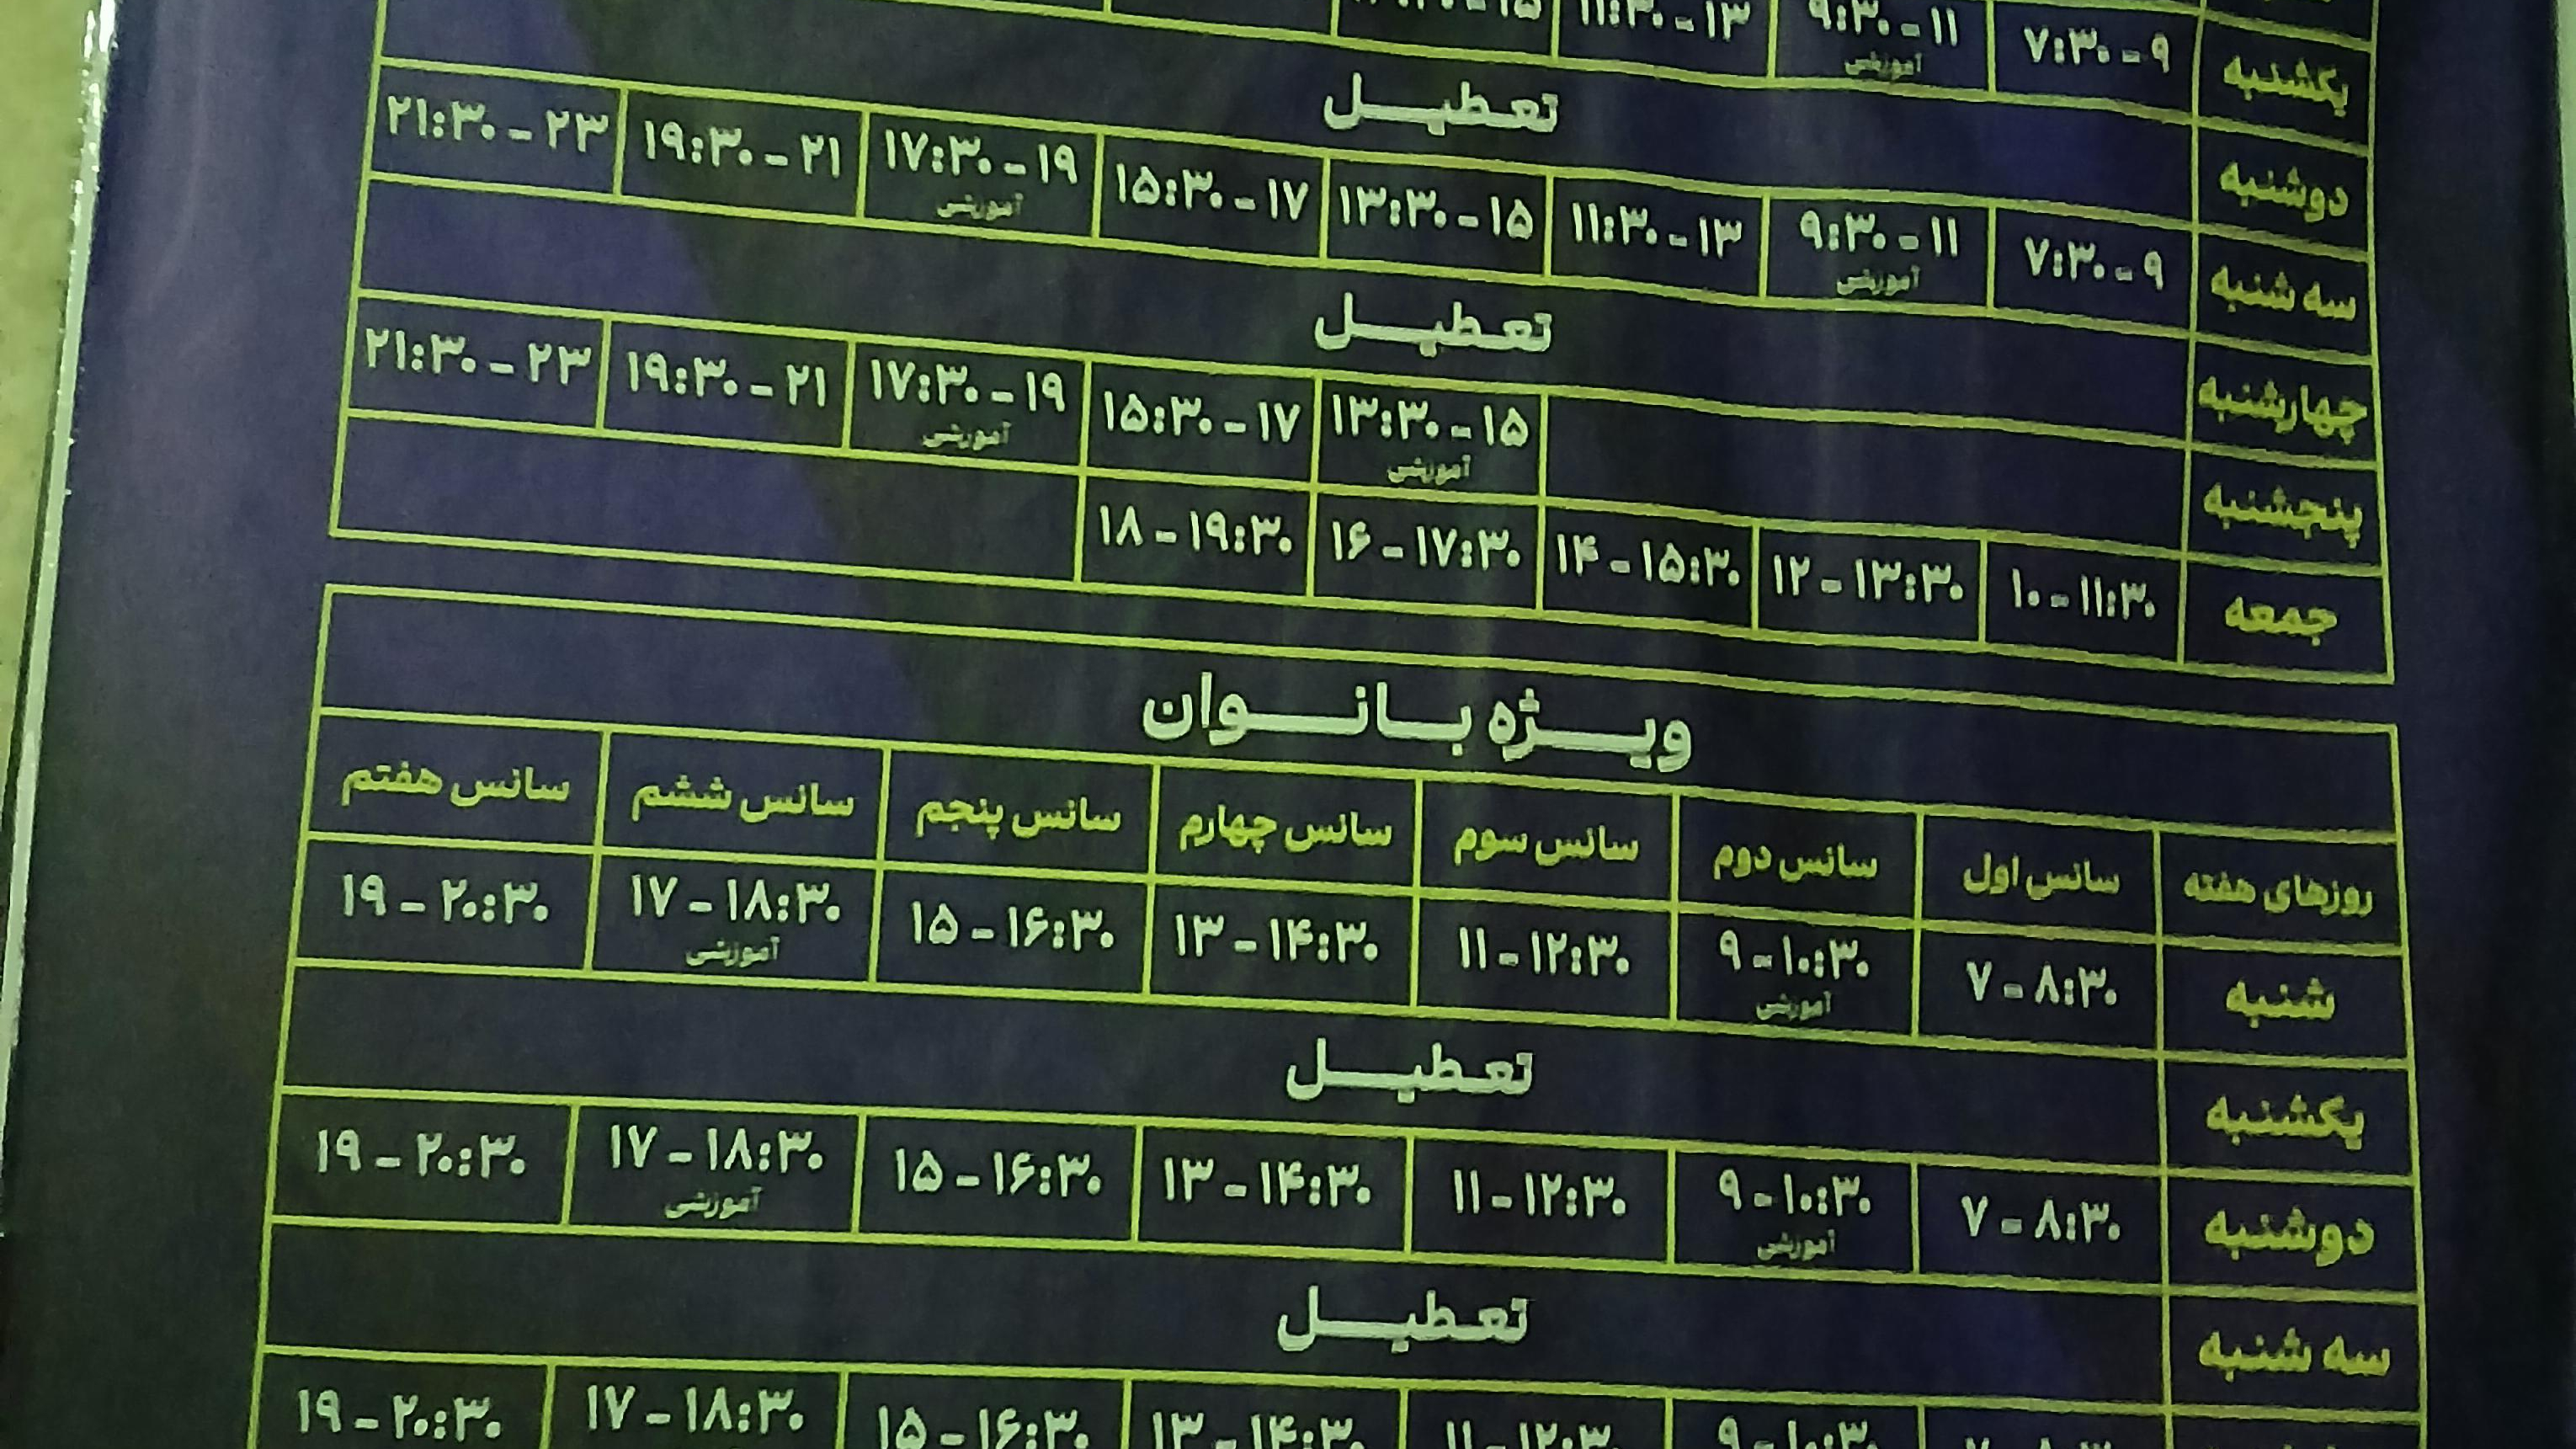 یکشنبه ۷:۳۰-۹ ۹:۳۰-۱۱ ۱۱:۳۰-۱۳
آموزشی
دوشنبه تعطیل
سه شنبه ۷:۳۰-۹ ۹:۳۰-۱۱ ۱۱:۳۰-۱۳ ۱۳:۳۰-۱۵ ۱۵:۳۰-۱۷ ۱۷:۳۰-۱۹ ۱۹:۳۰-۲۱ ۲۱:۳۰-۲۳
آموزشی آموزشی
چهارشنبه تعطیل
پنجشنبه ۱۳:۳۰-۱۵ ۱۵:۳۰-۱۷ ۱۷:۳۰-۱۹ ۱۹:۳۰-۲۱ ۲۱:۳۰-۲۳
آموزشی آموزشی
جمعه ۱۰-۱۱:۳۰ ۱۲-۱۳:۳۰ ۱۴-۱۵:۳۰ ۱۶-۱۷:۳۰ ۱۸-۱۹:۳۰
ویژه بانوان
روزهای هفته سانس اول سانس دوم سانس سوم سانس چهارم سانس پنجم سانس ششم سانس هفتم
شنبه ۷-۸:۳۰ ۹-۱۰:۳۰ ۱۱-۱۲:۳۰ ۱۳-۱۴:۳۰ ۱۵-۱۶:۳۰ ۱۷-۱۸:۳۰ ۱۹-۲۰:۳۰
آموزشی آموزشی
یکشنبه تعطیل
دوشنبه ۷-۸:۳۰ ۹-۱۰:۳۰ ۱۱-۱۲:۳۰ ۱۳-۱۴:۳۰ ۱۵-۱۶:۳۰ ۱۷-۱۸:۳۰ ۱۹-۲۰:۳۰
آموزشی آموزشی
سه شنبه تعطیل
۹-۱۰:۳۰ ۱۱-۱۲:۳۰ ۱۳-۱۴:۳۰ ۱۵-۱۶:۳۰ ۱۷-۱۸:۳۰ ۱۹-۲۰:۳۰